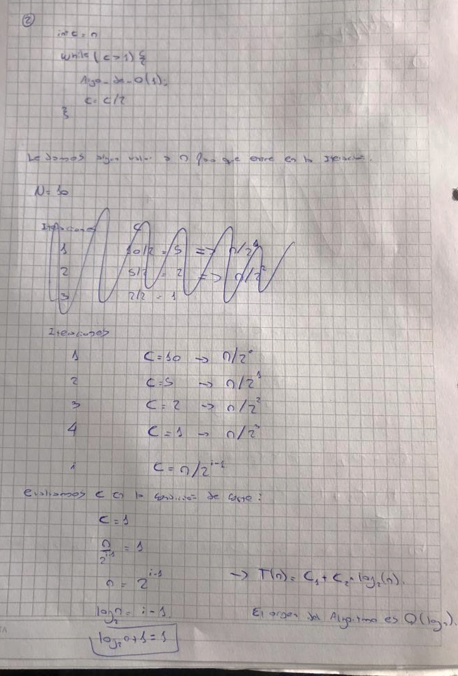 ②
int c = n
while (c > 1) {
Algo_de_O(1);
c = c/2
}
Le damos algun valor a n para que entre en la iteración.
N = 10
Iteraciones C
1 10/2 = 5 => n/2¹
2 5/2 = 2 => n/2²
3 2/2 = 1
Iteraciones
1 C = 10 → n/2⁰
2 C = 5 → n/2¹
3 C = 2 → n/2²
4 C = 1 → n/2³
i C = n/2^(i-1)
Evaluamos C en la condición de corte:
C = 1
n/2^(i-1) = 1
n = 2^(i-1) → T(n) = C₁ + C₂ * log₂(n).
log₂ n = i - 1 El orden del Algoritmo es O(log n).
log₂ n + 1 = i